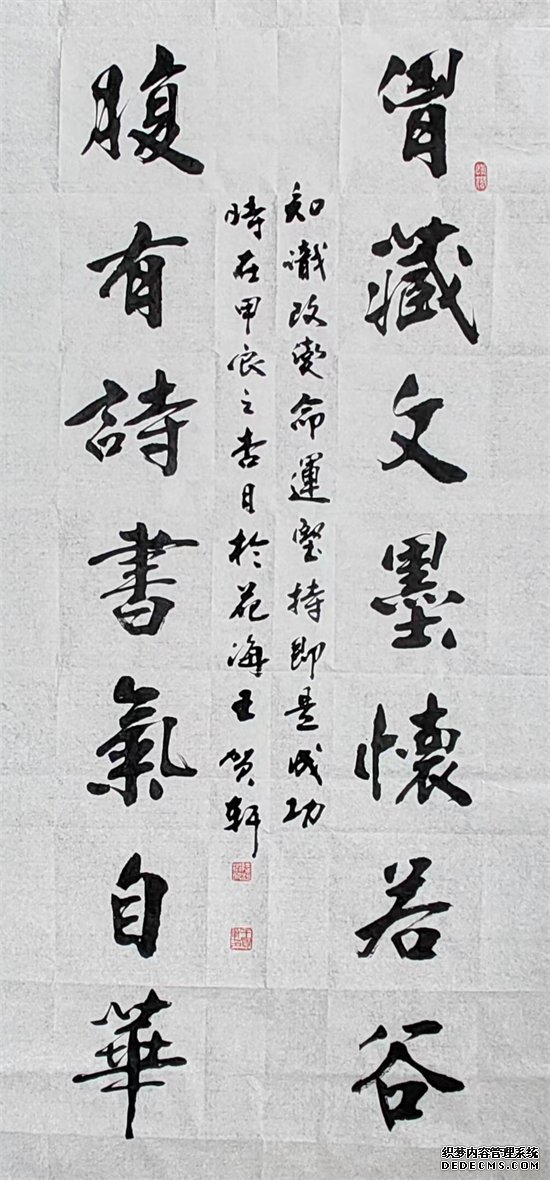 胷藏文墨懷若谷
知識改變命運堅持即是成功
時在甲辰之杏月於花海王贺軒
腹有詩書氣自華
织梦内容管理系统
DEDECMS.COM